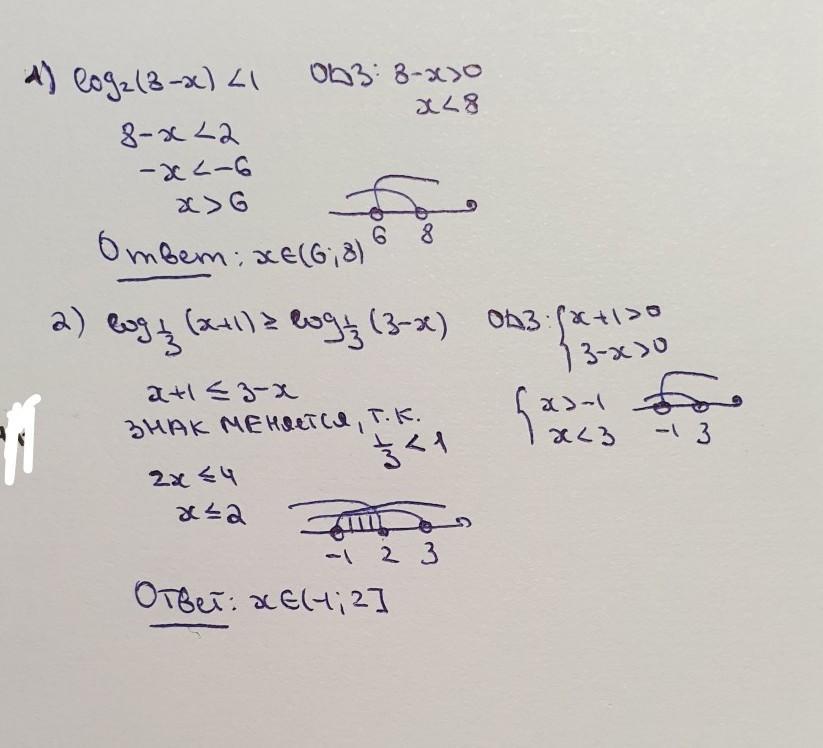 1) log₂(8-x) <1 ОДЗ: 8-x>0
x<8
8-x <2
-x <-6
x > 6
6 8
Ответ: x∈(6;8)
2) log_{1/3} (x+1) ≥ log_{1/3} (3-x) ОДЗ: { x+1>0
3-x>0
x+1 ≤ 3-x
{ x>-1
x<3
-1 3
ЗНАК МЕНЯЕТСЯ, Т.К.
1/3 < 1
2x ≤ 4
x ≤ 2
-1 2 3
Ответ: x∈(-1;2]